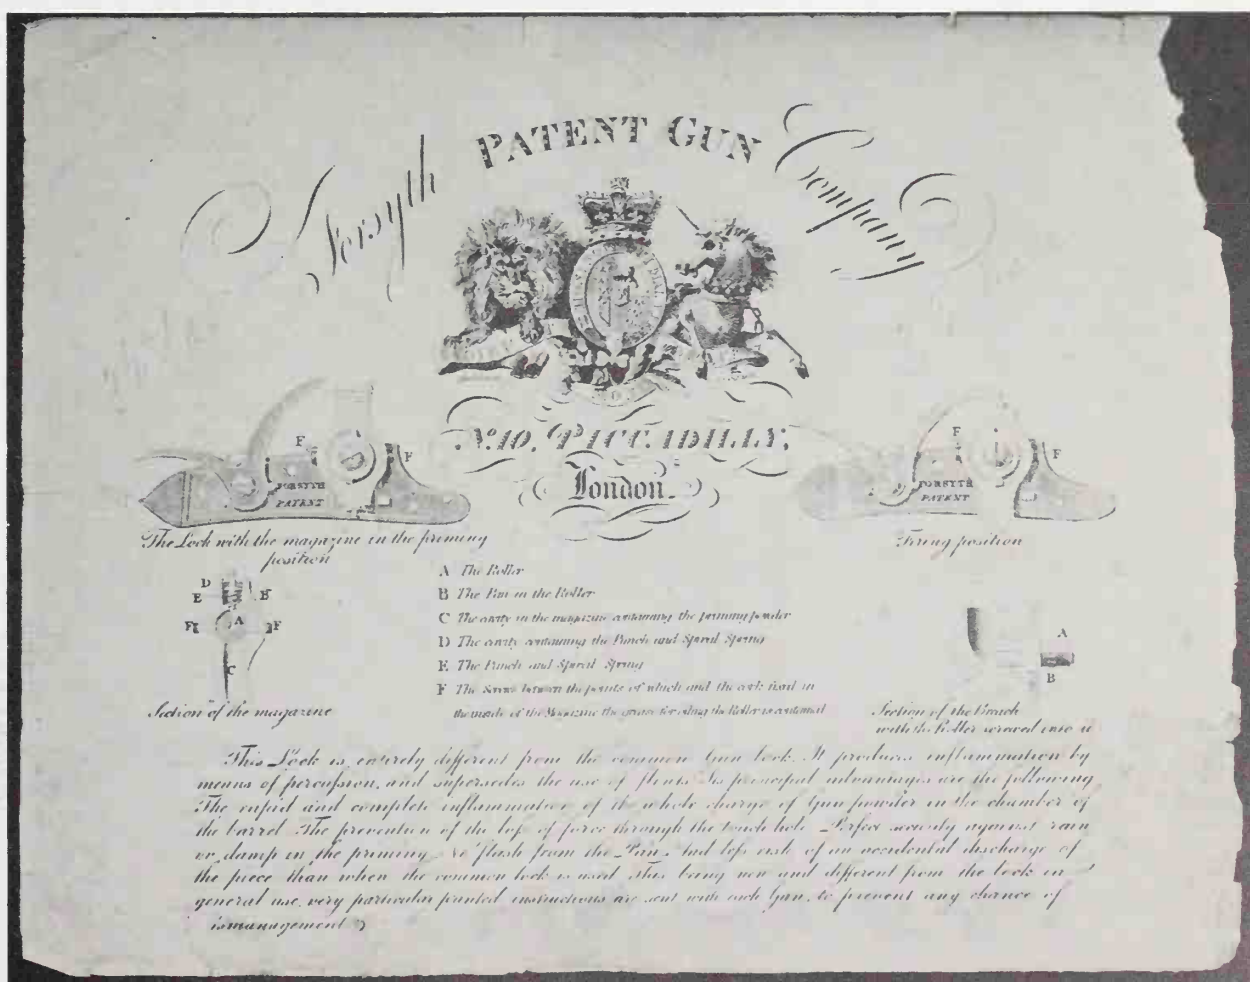 Forsyth PATENT GUN Company
No. 10, PICCADILLY,
London
F
F
FORSYTH
PATENT
F
F
FORSYTH
PATENT
The Lock with the magazine in the priming
position
Firing position
D
E
B
A
F
F
C
Section of the magazine
A The Roller
B The Pan in the Roller
C The cavity in the magazine containing the priming powder
D The cavity containing the Punch and Spiral Spring
E The Punch and Spiral Spring
F The Screws between the points of which and the
the inside of the Magazine the for oiling the Roller is contained
A
B
Section of the Breach
with the Roller screwed into it
This Lock is entirely different from the common Gun lock. It produces inflammation by
means of percussion, and supersedes the use of flints. Its principal advantages are the following
The rapid and complete inflammation of the whole charge of Gun powder in the chamber of
the barrel. The prevention of the loss of force through the touch hole. Perfect security against rain
or damp in the priming. No flash from the Pan. And less risk of an accidental discharge of
the piece than when the common lock is used. This being new and different from the lock in
general use, very particular printed instructions are sent with each Gun, to prevent any chance of
ismanagement